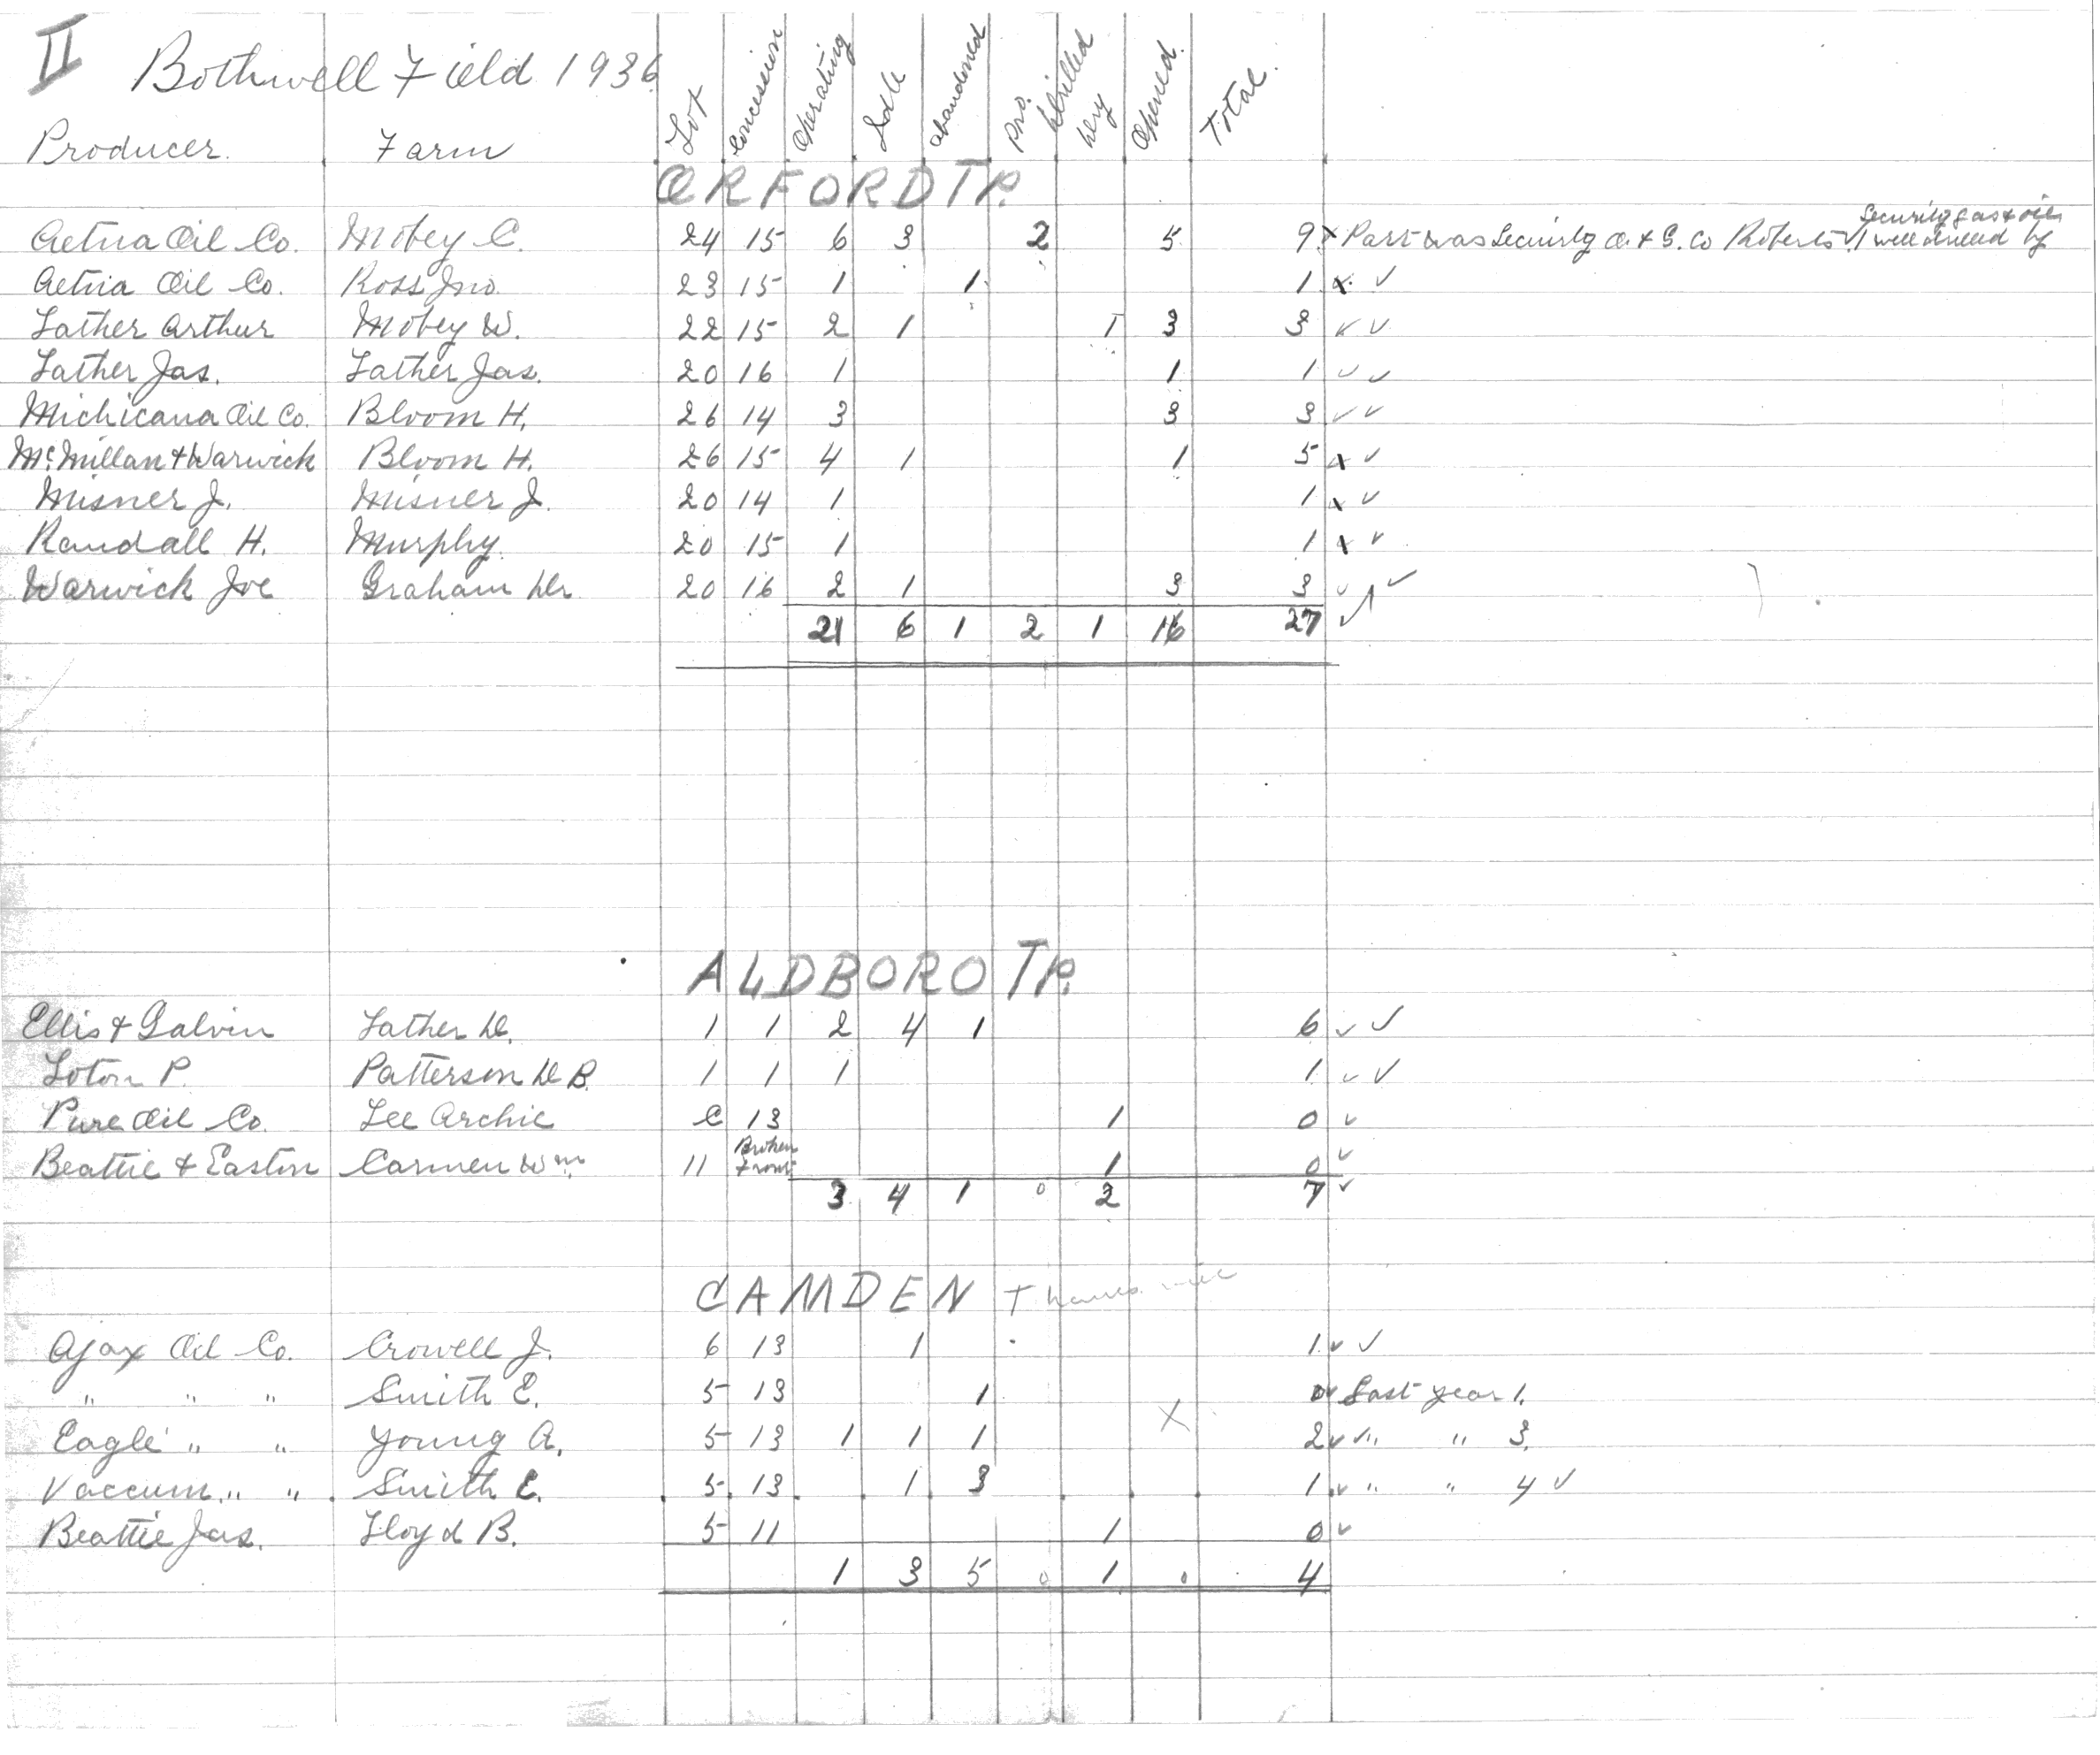 II Bothwell Field 1936
Producer. Farm Lot Concession Operating Idle abandoned Pro. Drilled Dry Opened Total.
ORFORD TP.
Aetna Oil Co. Mobey C. 24 15 6 3 2 5 9 x Part was Security O. & G. Co Roberts √ 1 well drilled by Security gas & oil
Aetna Oil Co. Ross Jno 23 15 1 1 1 x ✓
Lather Arthur Mobey W. 22 15 2 1 1 3 3 ✓ ✓
Lather Jas. Lather Jas. 20 16 1 1 1 ✓ ✓
Michicana Oil Co. Bloom H. 26 14 3 3 3 ✓ ✓
McMillan & Warwick Bloom H. 26 15 4 1 1 5 x ✓
Misner J. Misner J. 20 14 1 1 x ✓
Randall H. Murphy. 20 15 1 1 x ✓
Warwick Joe Graham Dr 20 16 2 1 3 3 ✓ ✓
21 6 1 2 1 16 27 ✓
ALDBORO TP.
Ellis & Galvin Lather D. 1 1 2 4 1 6 ✓ ✓
Loton P. Patterson D B. 1 1 1 1 ✓ ✓
Pure Oil Co. Lee Archie C 13 1 0 ✓
Beattie & Easton Carmen Wm. 11 Broken Front 1 0 ✓
3 4 1 0 2 7 ✓
CAMDEN Thames
Ajax Oil Co. Crowell J. 6 13 1 1 ✓ ✓
" " " Smith E. 5 13 1 0 ✓ Last year 1.
Eagle " " Young A. 5 13 1 1 1 X 2 ✓ ✓ " " 3.
Vaccum " " Smith E. 5 13 1 3 1 ✓ " " 4 ✓
Beattie Jas. Lloyd B. 5 11 1 0 ✓
1 3 5 0 1 0 4